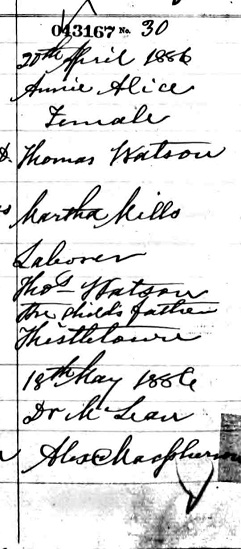 043167 No. 30
20th April 1886
Annie Alice
Female
Thomas Watson
Martha Mills
Laborer
Thos Watson
the childs father
Thistletown
18th May 1886
Dr McLean
Alex Macpherson